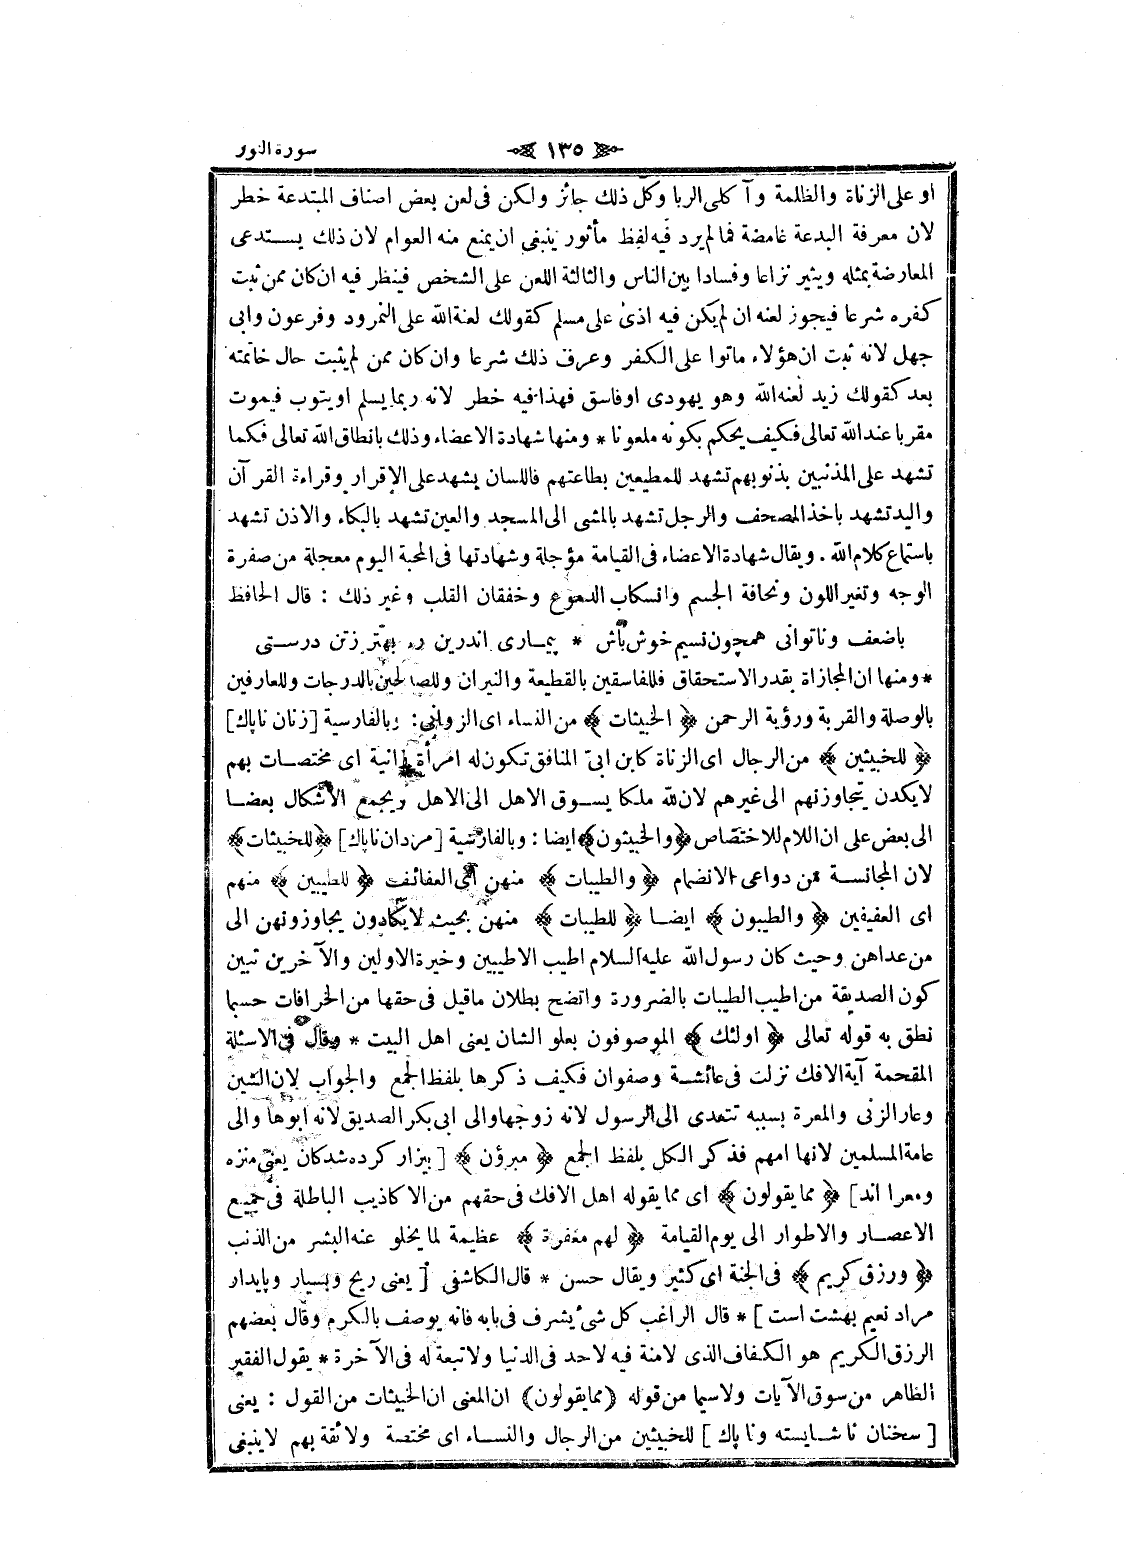 سورة النور
﴿ ١٣٥ ﴾
او على الزناة والظلمة وآكلى الربا وكل ذلك جائز ولكن فى لعن بعض اصناف المبتدعة خطر
لان معرفة البدعة غامضة فمالم يرد فيه لفظ مأثور ينبغى ان يمنع منه العوام لان ذلك يستدعى
المعارضة بمثله ويثير نزاعا وفسادا بين الناس والثالثة اللعن على الشخص فينظر فيه ان كان ممن ثبت
كفره شرعا فيجوز لعنه ان لم يكن فيه اذى على مسلم كقولك لعنة الله على النمرود وفرعون وابى
جهل لانه ثبت ان هؤلاء ماتوا على الكفر وعرف ذلك شرعا وان كان ممن لم يثبت حال خاتمته
بعد كقولك زيد لعنه الله وهو يهودى اوفاسق فهذا فيه خطر لانه ربما يسلم او يتوب فيموت
مقربا عند الله تعالى فكيف يحكم بكونه ملعونا * ومنها شهادة الاعضاء وذلك بانطاق الله تعالى فكما
تشهد على المذنبين بذنوبهم تشهد للمطيعين بطاعتهم فاللسان يشهد على الاقرار وقراءة القرآن
واليد تشهد باخذ المصحف والرجل تشهد بالمشى الى المسجد والعين تشهد بالبكاء والاذن تشهد
باستماع كلام الله . ويقال شهادة الاعضاء فى القيامة مؤجلة وشهادتها فى المحبة اليوم معجلة من صفرة
الوجه وتغير اللون ونحافة الجسم وانسكاب الدموع وخفقان القلب وغير ذلك : قال الحافظ
باضعف وناتوانى همچون نسيم خوش باش * بيمارى اندرين ره بهتر زتن درستى
* ومنها ان المجازاة بقدر الاستحقاق فللفاسقين بالقطيعة والنيران وللصالحين بالدرجات وللعارفين
بالوصلة والقربة ورؤية الرحمن ﴿ الخبيثات ﴾ من النساء اى الزوانى : وبالفارسية [زنان ناپاك]
﴿ للخبيثين ﴾ من الرجال اى الزناة كابن ابىّ المنافق تكون له امرأة زانية اى مختصات بهم
لا يكدن يتجاوزنهم الى غيرهم لان لله ملكا يسوق الاهل الى الاهل ويجمع الاشكال بعضا
الى بعض على ان اللام للاختصاص ﴿ والخبيثون ﴾ ايضا : وبالفارسية [مردان ناپاك] ﴿ للخبيثات ﴾
لان المجانسة من دواعى الانضمام ﴿ والطيبات ﴾ منهن اى العفائف ﴿ للطيبين ﴾ منهم
اى العفيفين ﴿ والطيبون ﴾ ايضا ﴿ للطيبات ﴾ منهن بحيث لا يكادون يجاوزونهن الى
من عداهن وحيث كان رسول الله عليه السلام اطيب الاطيبين وخيرة الاولين والآخرين تبين
كون الصديقة من اطيب الطيبات بالضرورة واتضح بطلان ماقيل فى حقها من الخرافات حسبما
نطق به قوله تعالى ﴿ اولئك ﴾ الموصوفون بعلو الشان يعنى اهل البيت * وقال فى الاسئلة
المقحمة آية الافك نزلت فى عائشة وصفوان فكيف ذكرها بلفظ الجمع والجواب لان الشين
وعار الزنى والمعرة بسببه تتعدى الى الرسول لانه زوجها والى ابى بكر الصديق لانه ابوها والى
عامة المسلمين لانها امهم فذكر الكل بلفظ الجمع ﴿ مبرؤن ﴾ [ بيزار كرده شدكان يعنى منزه
ومعرا اند] ﴿ مما يقولون ﴾ اى مما يقوله اهل الافك فى حقهم من الاكاذيب الباطلة فى جميع
الاعصار والاطوار الى يوم القيامة ﴿ لهم مغفرة ﴾ عظيمة لما يخلو عنه البشر من الذنب
﴿ ورزق كريم ﴾ فى الجنة اى كثير ويقال حسن * قال الكاشفى [ يعنى ريح وبسيار وپايدار
مراد نعيم بهشت است ] * قال الراغب كل شئ يشرف فى بابه فانه يوصف بالكرم وقال بعضهم
الرزق الكريم هو الكفاف الذى لامنة فيه لاحد فى الدنيا ولاتبعة له فى الآخرة * يقول الفقير
الظاهر من سوق الآيات ولاسيما من قوله ( مما يقولون ) ان المعنى ان الخبيثات من القول : يعنى
[ سخنان ناشايسته وناپاك ] للخبيثين من الرجال والنساء اى مختصة ولائقة بهم لاينبغى